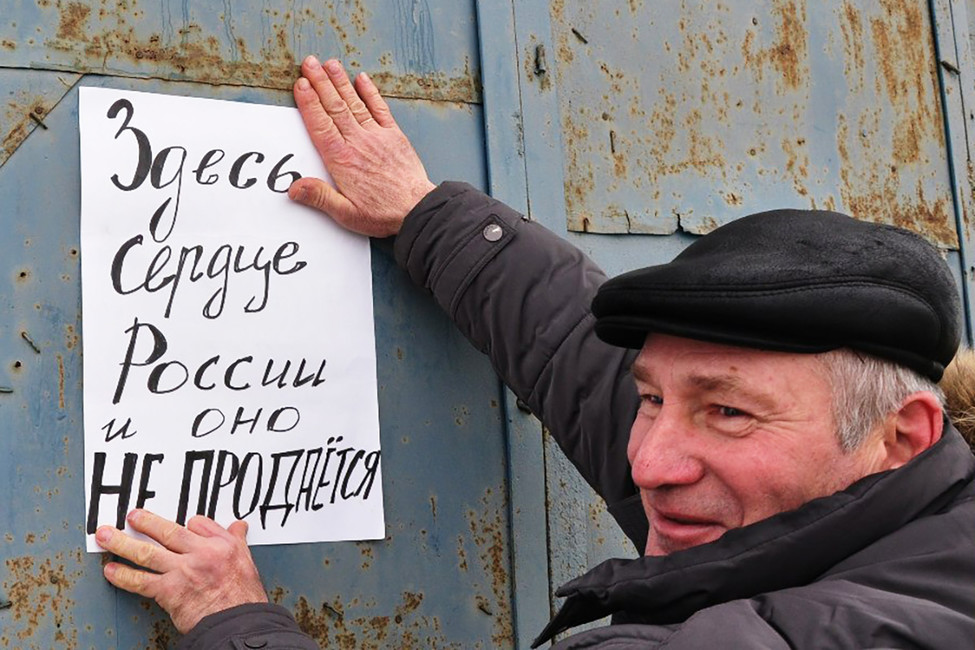 Здесь
Сердце
России
и оно
НЕ ПРОДАЁТСЯ